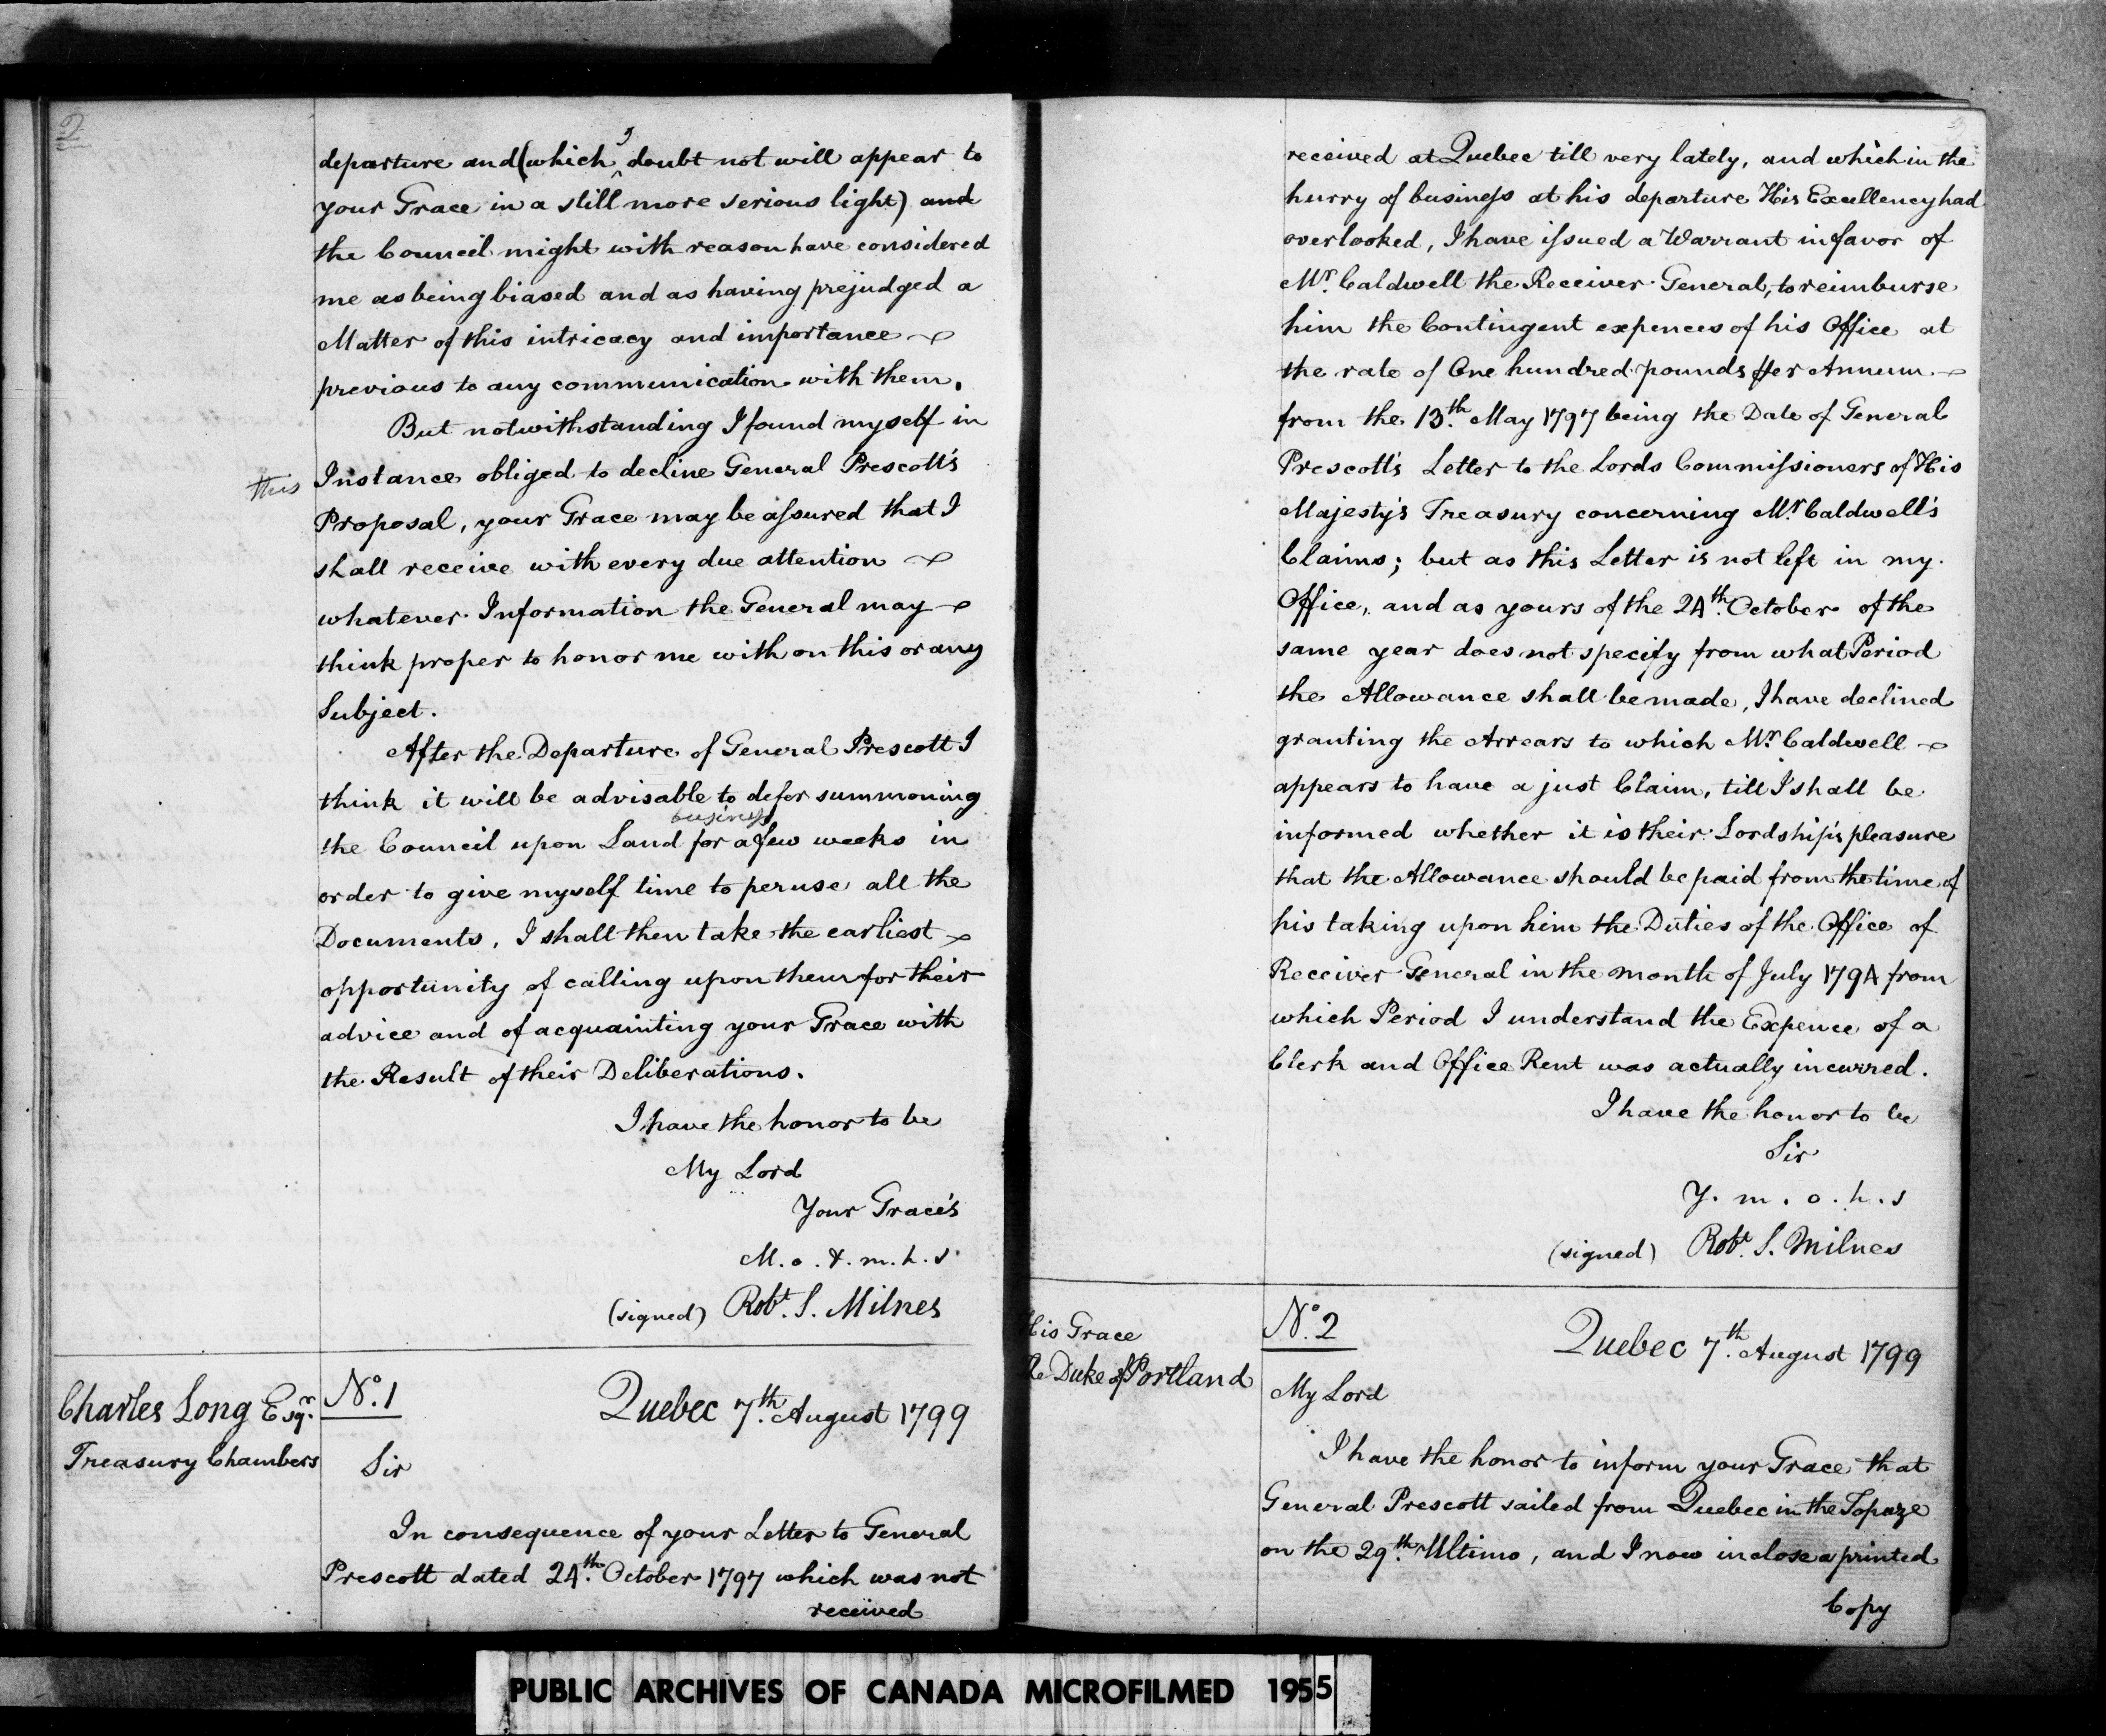 2
departure and (which I doubt not will appear to
your Grace in a still more serious light) and
the Council might with reason have considered
me as being biased and as having prejudged a
Matter of this intricacy and importance
previous to any communication with them.
But notwithstanding I found myself in
this Instance obliged to decline General Prescott's
Proposal, your Grace may be assured that I
shall receive with every due attention
whatever Information the General may
think proper to honor me with on this or any
Subject.
After the Departure of General Prescott I
think it will be advisable to defer summoning
business
the Council upon Land for a few weeks in
order to give myself time to peruse all the
Documents, I shall then take the earliest
opportunity of calling upon them for their
advice and of acquainting your Grace with
the Result of their Deliberations.
I have the honor to be
My Lord
Your Grace's
M. o. & m. h. s.
(signed) Robt. S. Milnes
Charles Long Esqr.
Treasury Chambers
No. 1
Quebec 7th. August 1799
Sir
In consequence of your Letter to General
Prescott dated 24th. October 1797 which was not
received
received at Quebec till very lately, and which in the
hurry of business at his departure His Excellency had
overlooked, I have issued a Warrant in favor of
Mr. Caldwell the Receiver General, to reimburse
him the Contingent expences of his Office at
the rate of One hundred pounds Per Annum.
from the 13th. May 1797 being the Date of General
Prescott's Letter to the Lords Commissioners of His
Majesty's Treasury concerning Mr. Caldwell's
Claims; but as this Letter is not left in my
Office, and as yours of the 24th. October of the
same year does not specify from what Period
the Allowance shall be made, I have declined
granting the Arrears to which Mr. Caldwell
appears to have a just Claim, till I shall be
informed whether it is their Lordship's pleasure
that the Allowance should be paid from the time of
his taking upon him the Duties of the Office of
Receiver General in the month of July 1794 from
which Period I understand the Expence of a
Clerk and Office Rent was actually incurred.
I have the honor to be
Sir
Y. m. o. h. s
(signed) Robt. S. Milnes
His Grace
The Duke of Portland
No. 2
Quebec 7th. August 1799
My Lord
I have the honor to inform your Grace that
General Prescott sailed from Quebec in the Topaze
on the 29th. Ultimo, and I now inclose a printed
Copy
PUBLIC ARCHIVES OF CANADA MICROFILMED 1955